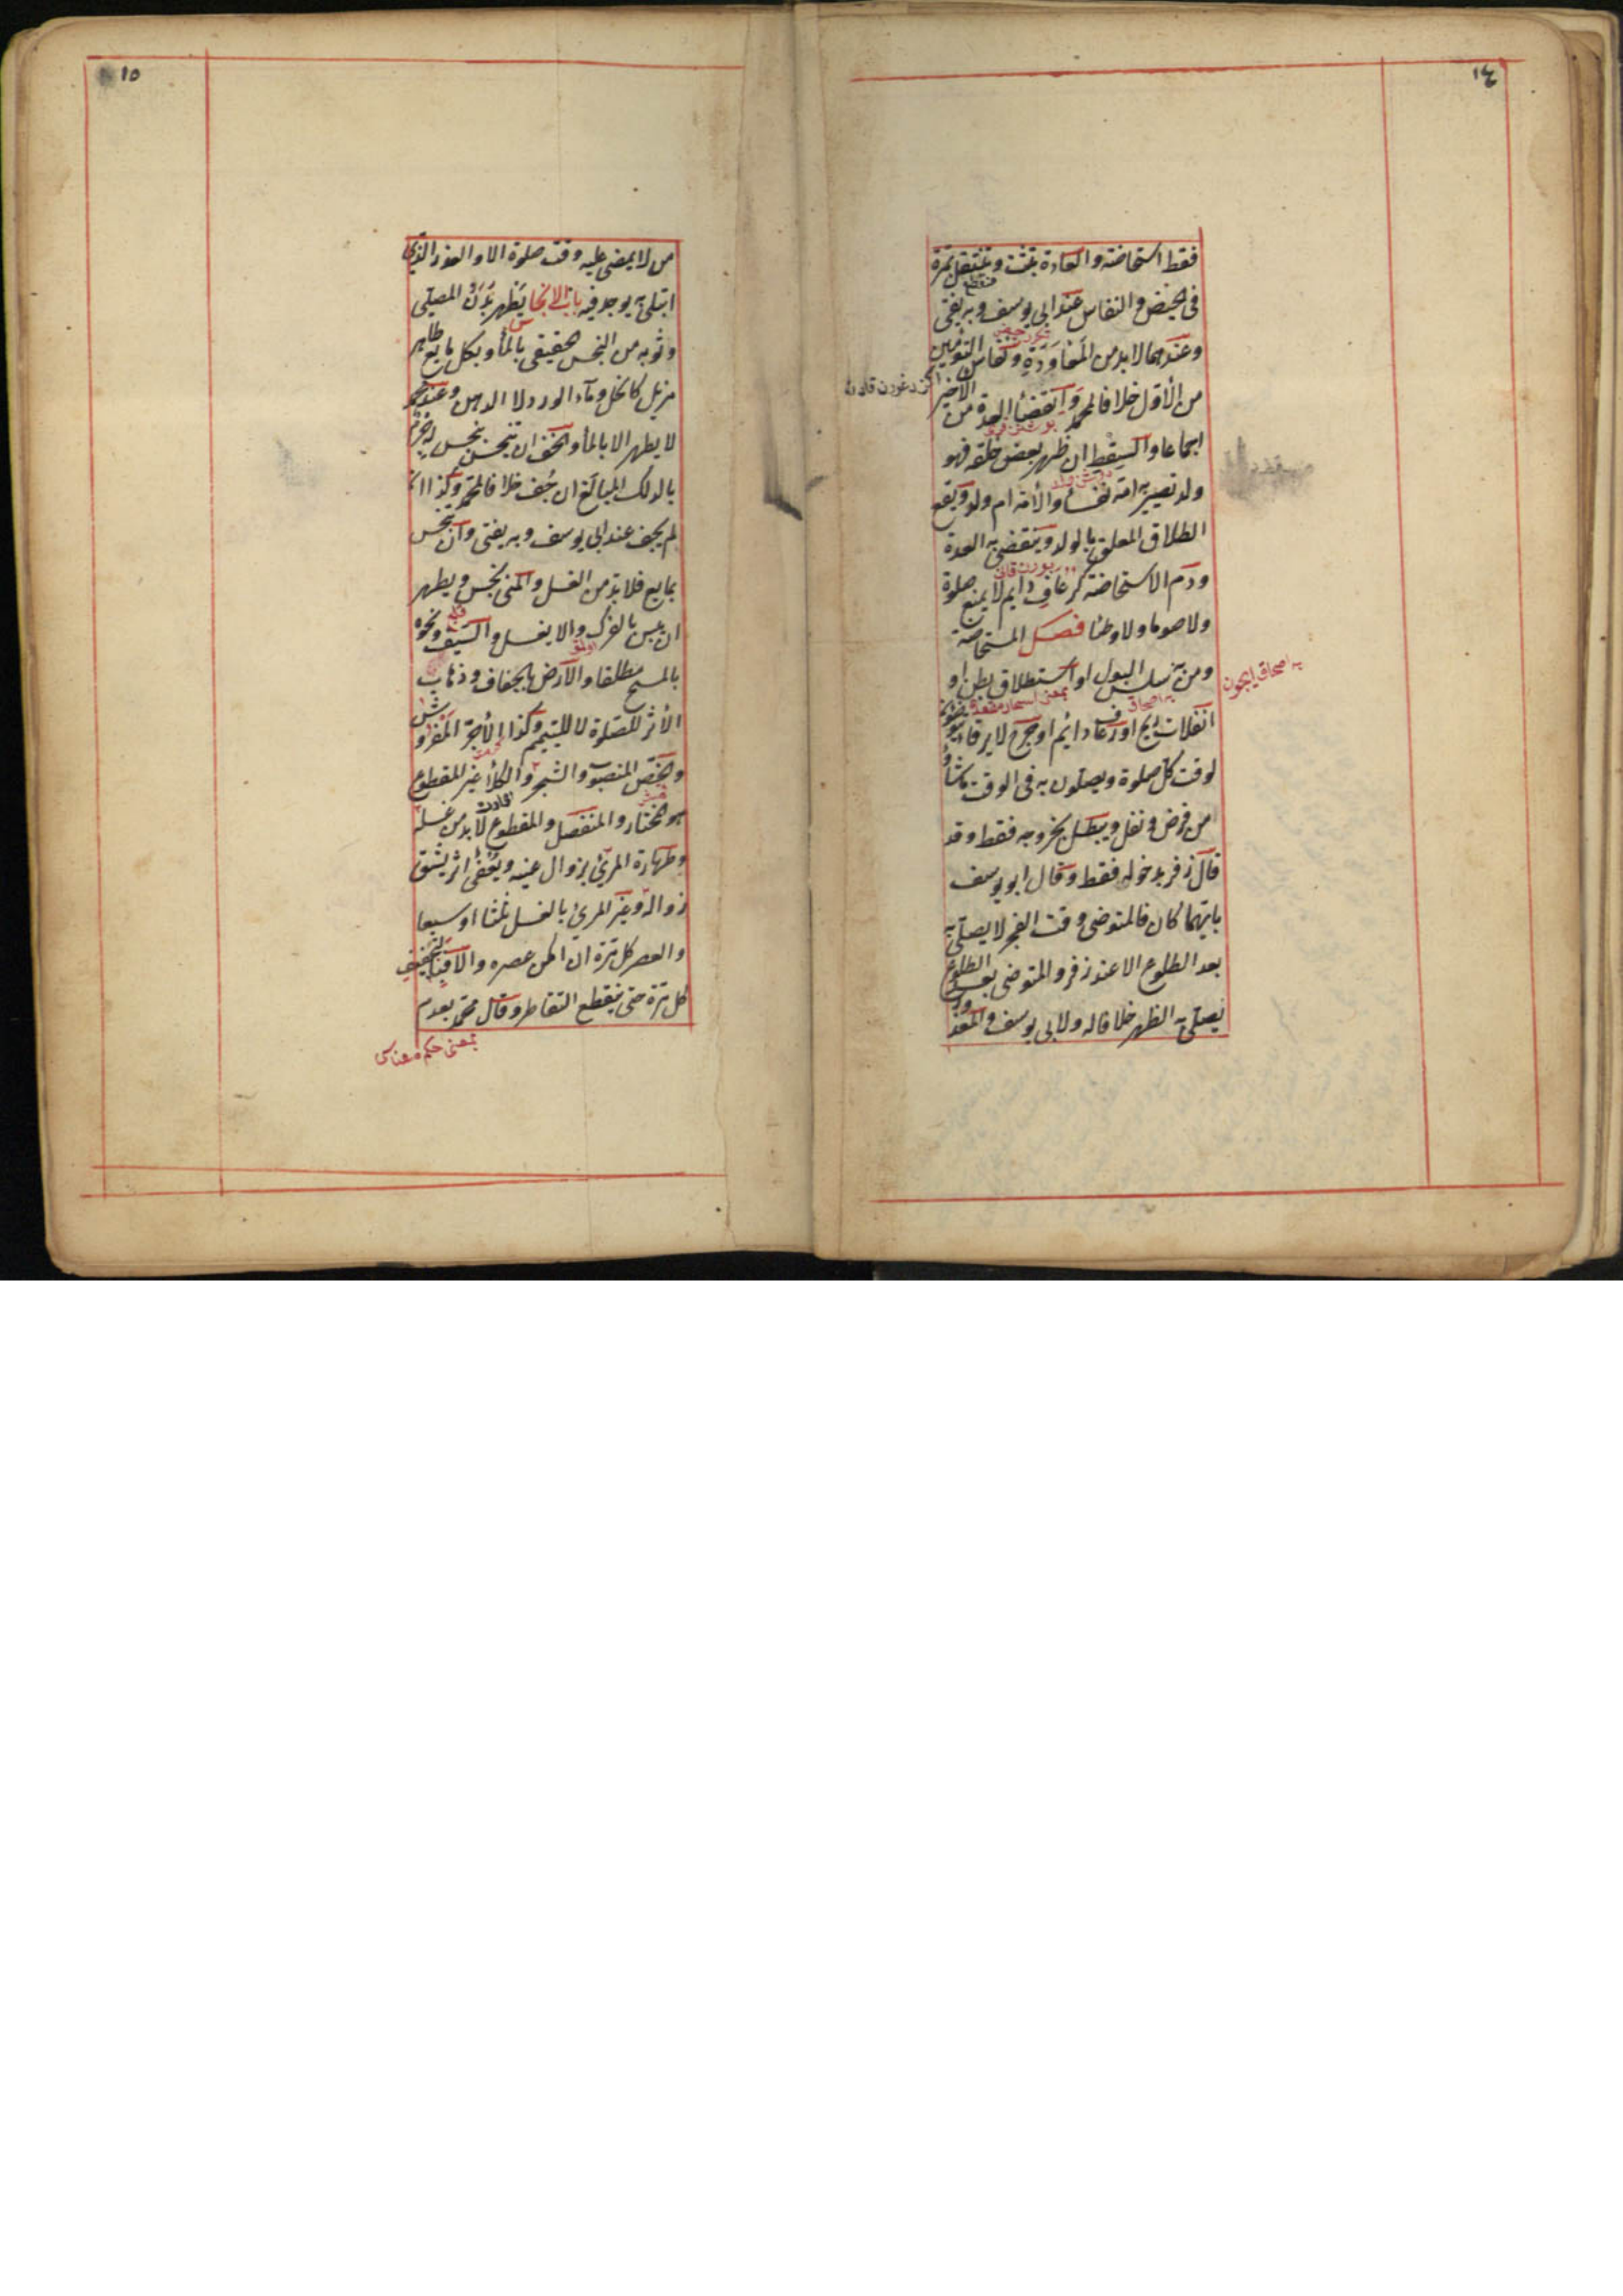 ١٤
فقط استحاضة والعادة تثبت وتنتقل بمرة
فى الحيض والنفاس عند ابى يوسف وبه يفتى
وعندهما لابد من المعاودة ونفاس التوأمين
من الأول خلافا لمحمد وانقضأ العدة من الأخير
اجماعا والسقط ان ظهر بعض خلقه فهو
ولد تصير به امه نفسأ والأمة ام ولد ويقع
الطلاق المعلق بالولد وينقضى به العدة
ودم الاستحاضة كرعاف دايم لا يمنع صلوة
ولا صوما ولا وطئا فصل المستحاضة
ومن به سلس البول او استطلاق بطن او
انفلات ريح او رعاف دائم او جرح لا يرقاء يتوضؤن
لوقت كل صلوة ويصلون به فى الوقت ما شأوا
من فرض ونفل ويبطل بخروجه فقط وقد
قال زفر بدخوله فقط وقال ابو يوسف
بايهما كان فالمتوضى وقت الفجر لا يصلى به
بعد الطلوع الا عند زفر والمتوضى بعد الطلوع
يصلى به الظهر خلافا له ولابى يوسف والمعذور
١٥
من لا يمضى عليه وقت صلوة الا والعذر الذى
ابتلى به يوجد فيه باب الانجاس يطهر بدن المصلى
وثوبه من النجس الحقيقى بالمأ وبكل مايع طاهر
مزيل كالخل ومآء الورد لا الدهن وعند محمد
لا يطهر الا بالمأ والخف ان تنجس بنجس له جرم
بالدلك المبالغ ان جف خلافا لمحمد وكذا ان
لم يجف عند ابى يوسف وبه يفتى وان تنجس
بمايع فلا بد من الغسل والمنى نجس ويطهر
ان يبس بالفرك والا يغسل والسيف ونحوه
بالمسح مطلقا والارض بالجفاف وذهاب
الأثر للصلوة لا للتيمم وكذا الأجر المفروش
والخص المنصوب والشجر والكلأ غير المقطوع
هو المختار والمنفصل والمقطوع لا بد من غسله
وطهارة المرئ بزوال عينه ويعفى اثر يشق
زواله وغير المرئ بالغسل ثلثا او سبعا
والعصر كل مرة ان امكن عصره والا فبالتجفيف
كل مرة حتى ينقطع التقاطر وقال محمد بعدم